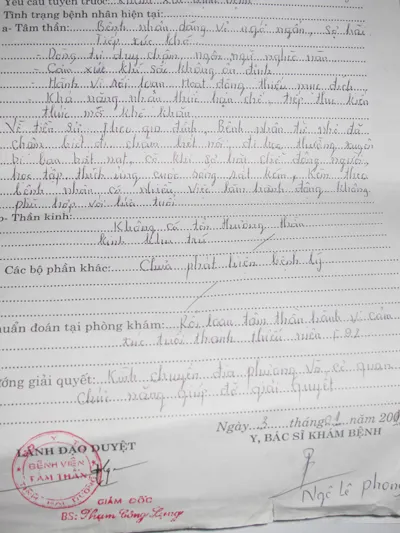 Yêu cầu tuyến trước:
Tình trạng bệnh nhân hiện tại:
a- Tâm thần: Bệnh nhân dáng vẻ ngơ ngẩn, sợ hãi
Tiếp xúc khó
- Dòng tư duy chậm, ngôn ngữ nghèo nàn
- Cảm xúc khí sắc không ổn định
- Hành vi rối loạn. Hoạt động thiếu mục đích
- Khả năng nhận thức hạn chế, tiếp thu kiến
thức mới khó khăn
Về tiền sử, theo gia đình, Bệnh nhân từ nhỏ đã
chậm chậm biết nói, đi học thường xuyên
bị bạn bắt nạt, có khi sợ hãi chỗ đông người,
học tập thích ứng cuộc sống rất kém,
bệnh nhân có nhiều việc làm hành động không
phù hợp với lứa tuổi
b- Thần kinh:
Không có tổn thương thần
kinh khu trú
Các bộ phận khác: Chưa phát hiện bệnh lý
chuẩn đoán tại phòng khám: Rối loạn tâm thần hành vi cảm
xúc tuổi thanh thiếu niên
hướng giải quyết: Kính chuyển địa phương và cơ quan
chức năng giúp đỡ giải quyết
Ngày 3 tháng năm 200
LÃNH ĐẠO DUYỆT
Y, BÁC SĨ KHÁM BỆNH
BỆNH VIỆN
TÂM THẦN
GIÁM ĐỐC
BS: Phạm Công
Ngô Lê Phong